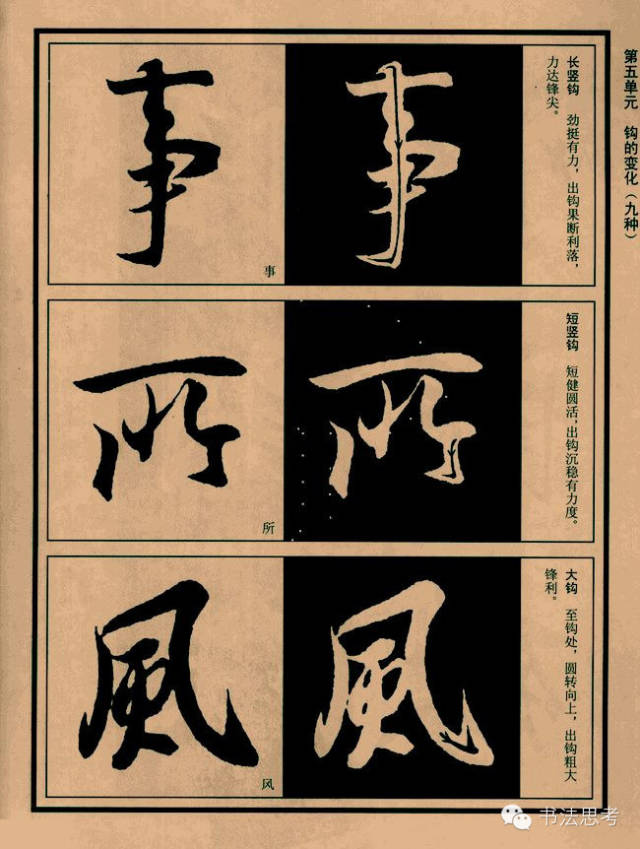 第五单元 钩的变化（九种）
长竖钩 劲挺有力，出钩果断利落，
力达锋尖。
事
事
事
短竖钩 短健圆活，出钩沉稳有力度。
所
所
所
大钩 至钩处，圆转向上，出钩粗大
锋利。
風
風
风
书法思考